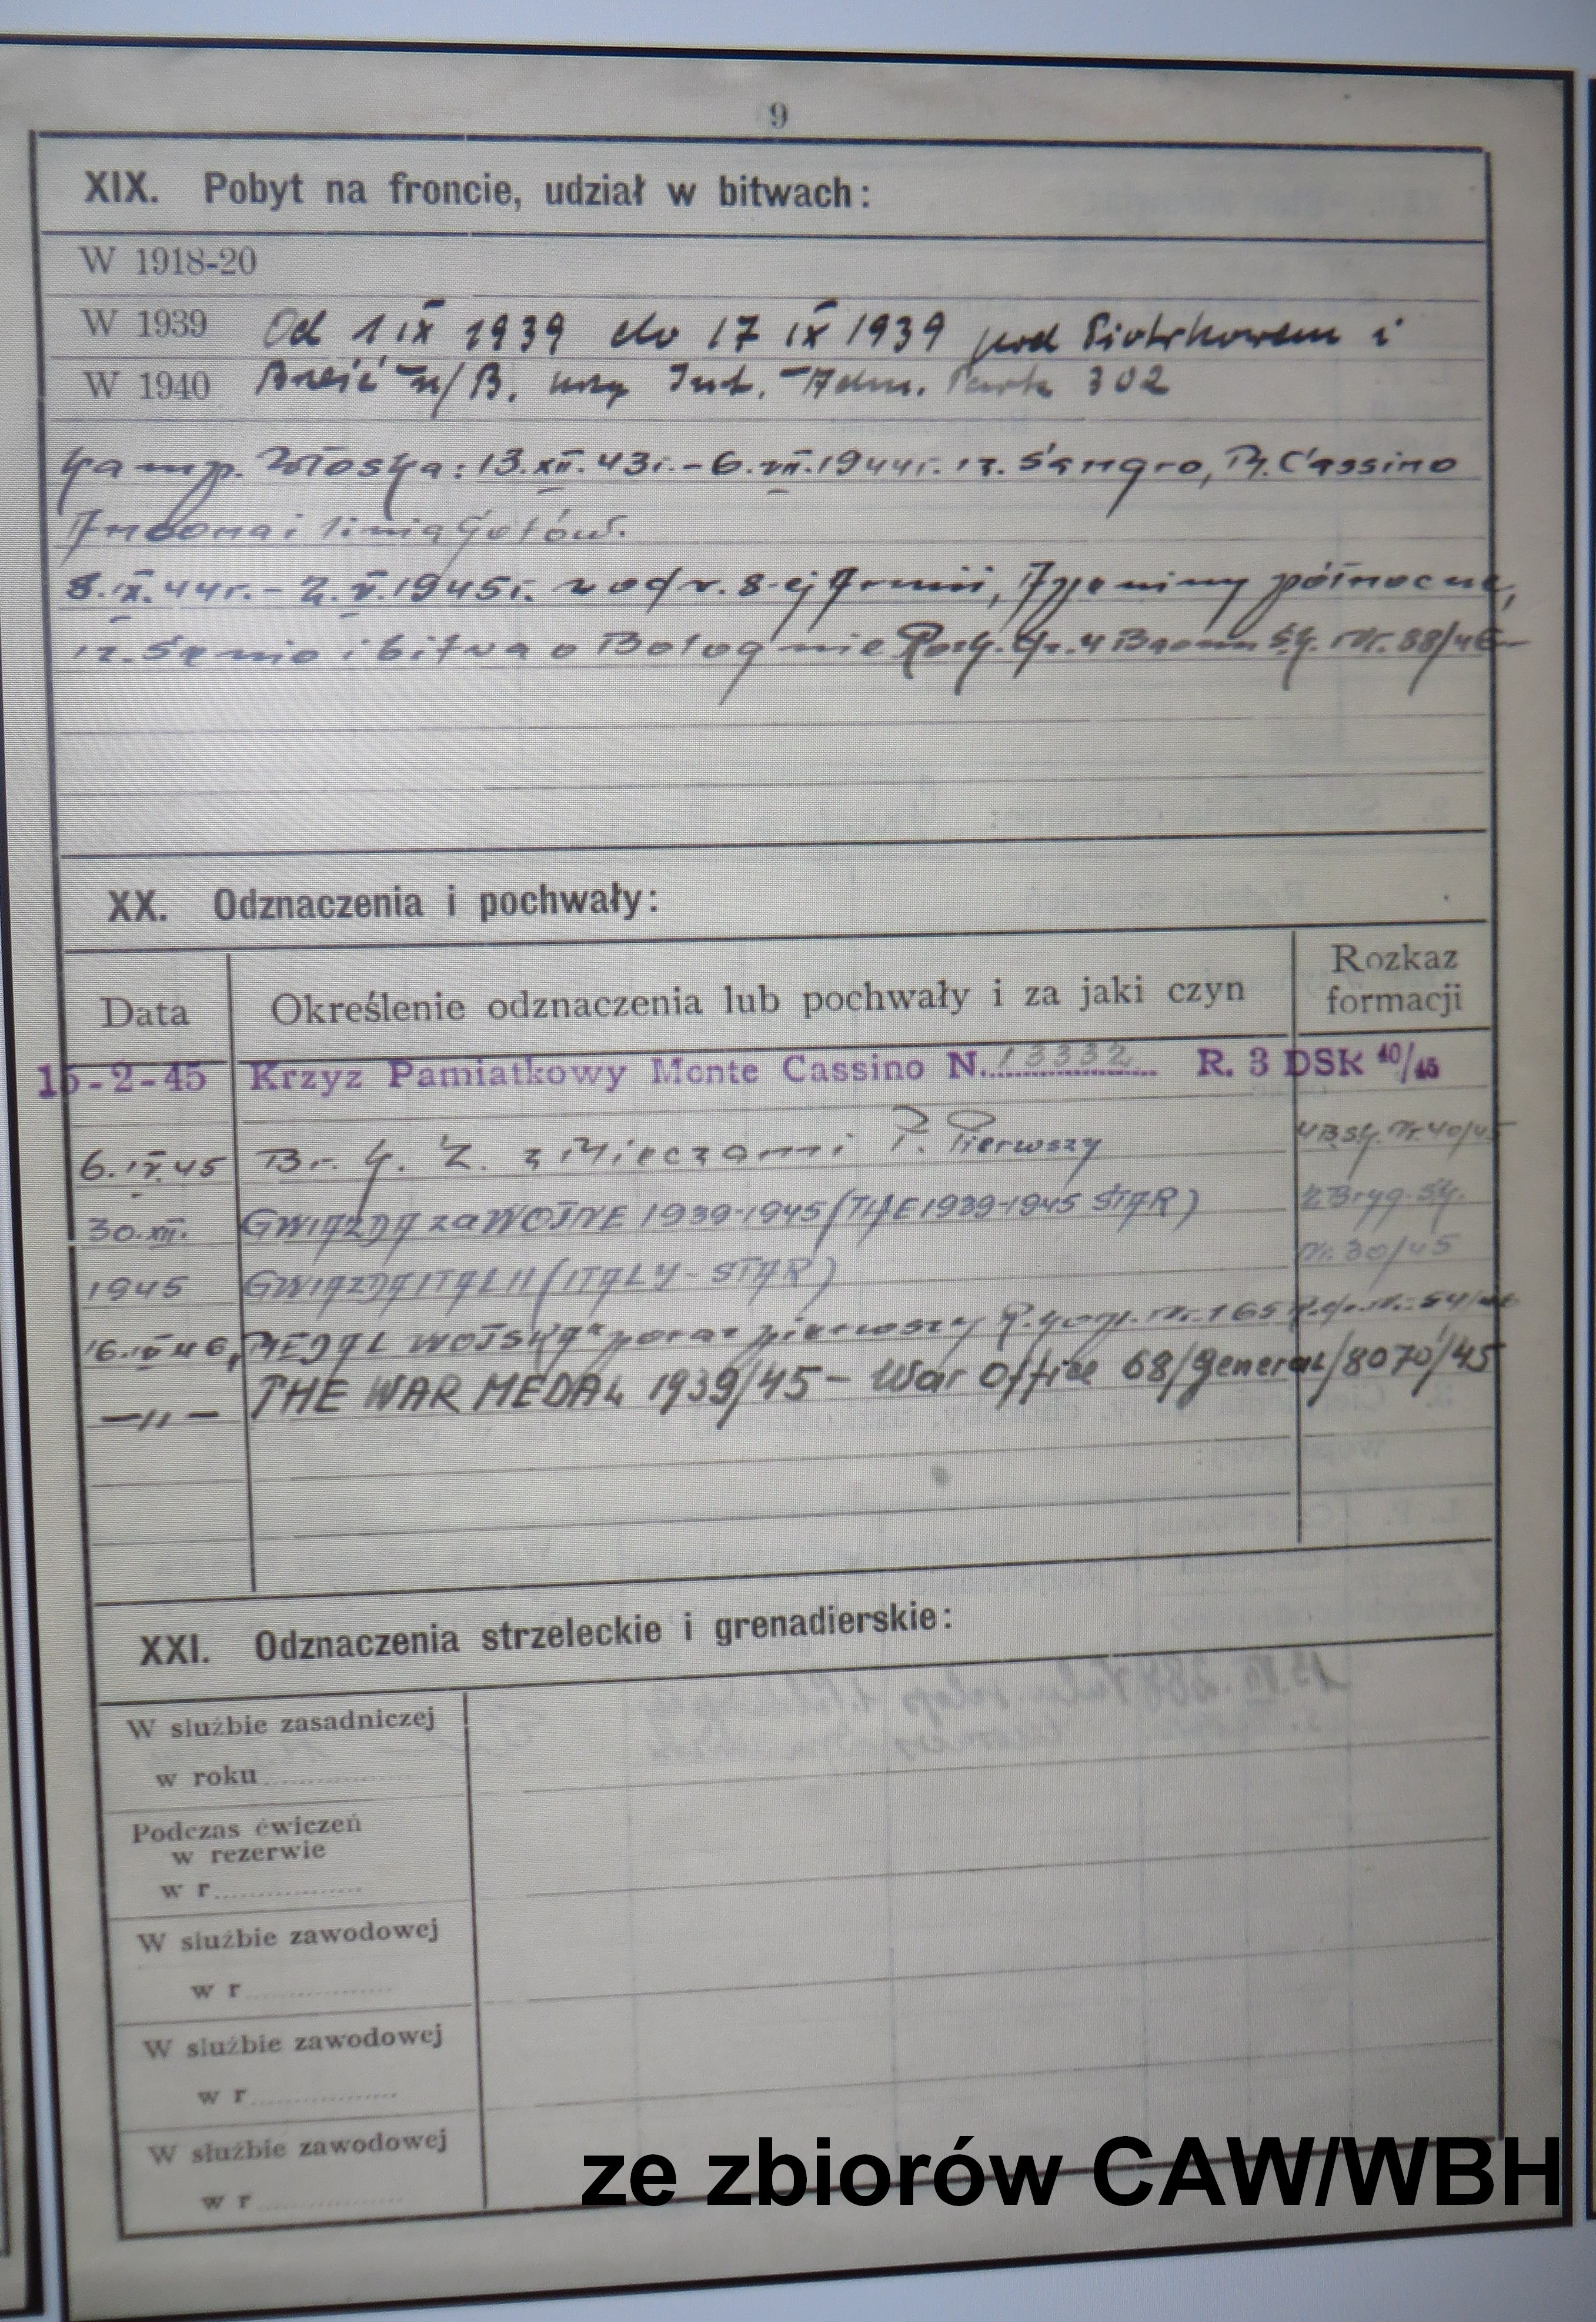 9
XIX. Pobyt na froncie, udział w bitwach:
W 1918-20
W 1939 Od 1 IX 1939 do 17 IX 1939 pod Piotrkowem i
W 1940 Brześć n/B. przy Int.-Adm. Park 302
Kamp. Włoska: 13.XII.43r.-6.VII.1944r. rz. Sangro, M. Cassino
Ancona i linia Gotów.
8.IX.44r.-2.V.1945r. w odw. 8-ej Armii, Apeniny północne,
rz. Senio i bitwa o Bolognie Nr. 88/46
XX. Odznaczenia i pochwały:
Data
Określenie odznaczenia lub pochwały i za jaki czyn
Rozkaz
formacji
15-2-45 Krzyz Pamiatkowy Monte Cassino N. 13332 R. 3 DSK 40/45
6.IV.45 Br. K. Z. z Mieczami P. Pierwszy Nr. 40/45
30.XII. GWIAZDA za WOJNE 1939-1945 (THE 1939-1945 STAR) 2 Bryg.
1945 GWIAZDA ITALII (ITALY-STAR) Nr. 30/45
16.IV 46, MEDAL WOJSKA" poraz pierwszy Nr. 165
-"- THE WAR MEDAL 1939/45 - War Office 68/General/8070/45
XXI. Odznaczenia strzeleckie i grenadierskie:
W służbie zasadniczej
w roku
Podczas ćwiczeń
w rezerwie
w r
W służbie zawodowej
w r
W służbie zawodowej
w r
W służbie zawodowej
w r
ze zbiorów CAW/WBH